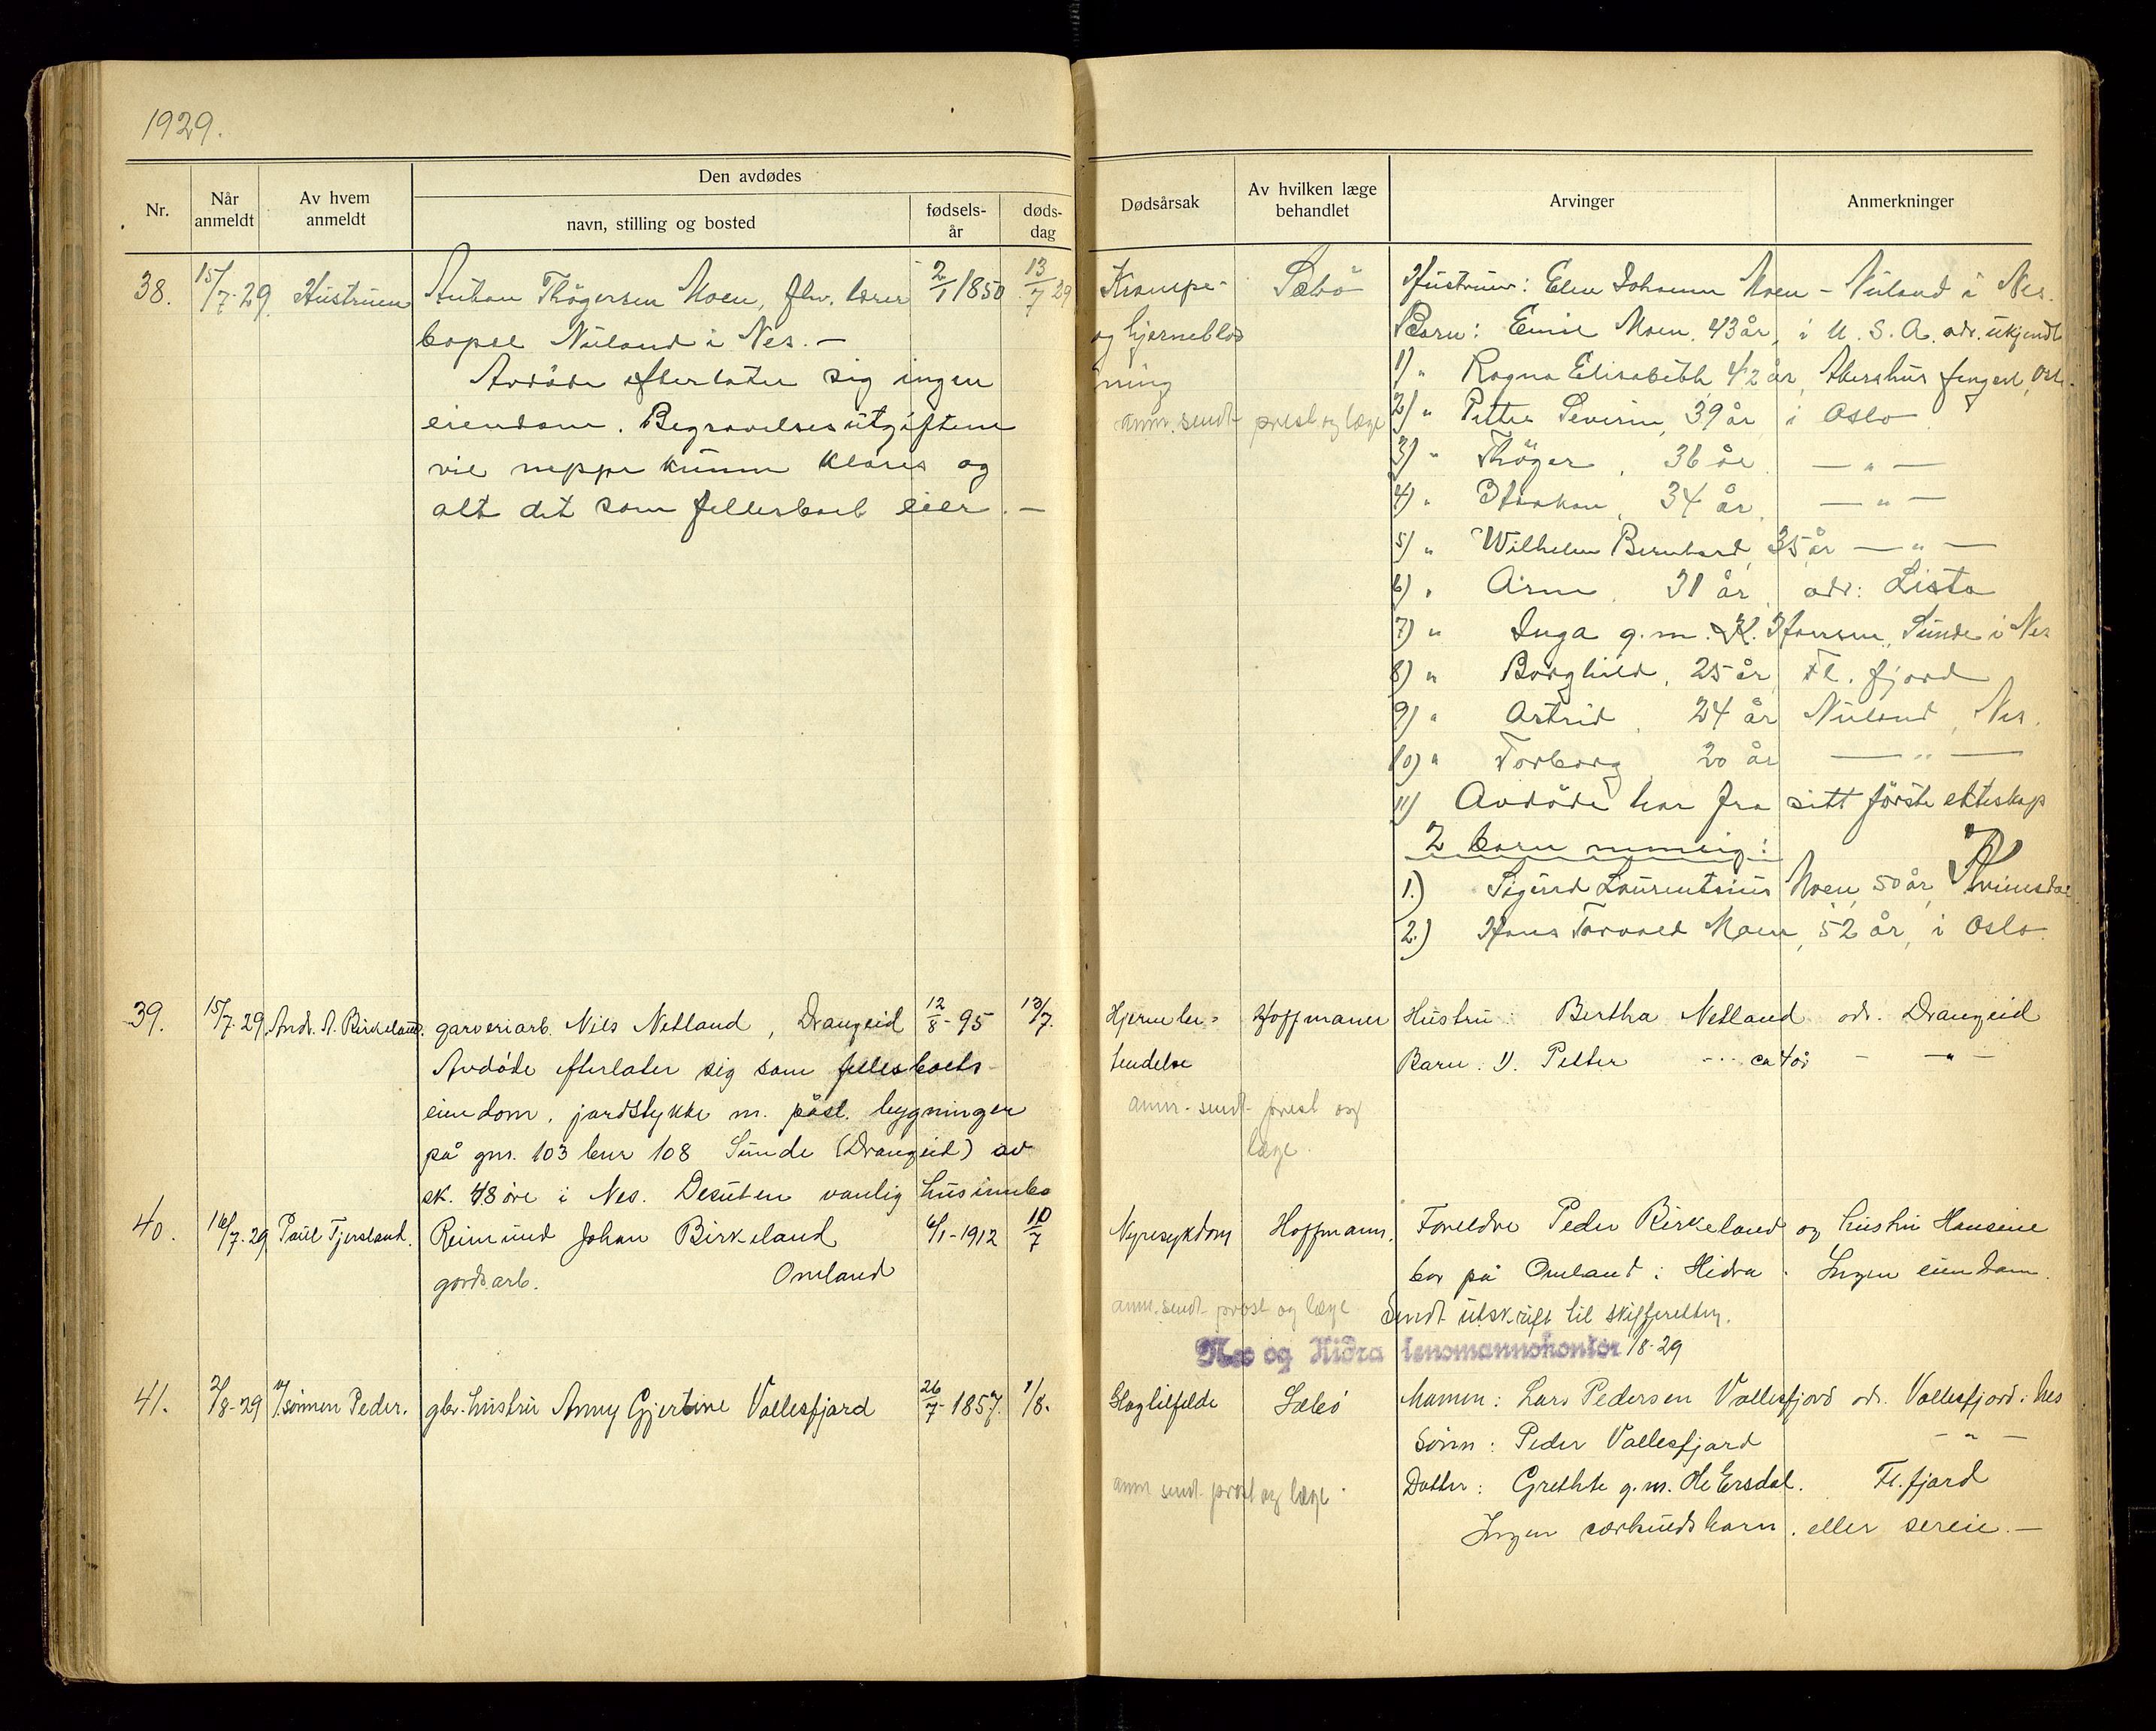 1929.
Nr.
Når anmeldt
Av hvem anmeldt
Den avdødes
navn, stilling og bosted
fødselsår
dødsdag
Dødsårsak
Av hvilken læge behandlet
Arvinger
Anmerkninger
38. 15/7-29. Hustruen Anton Thögersen Moen, fhv. lærer 2/1 1850 13/7 29
bopæl Nuland i Nes. —
Avdöde efterlater sig ingen
eiendom. Begravelsesutgiftene
vil neppe kunne klares og
alt det som fellesboet eier. —
Krampe- Sæbö
og hjerneblød
ning
anm. sendt prest og læge
Hustrun: Elen Johanne Moen - Nuland i Nes.
Barn: Emil Moen, 43 år, i U. S. A. adr. ukjendt
1) " Ragna Elisabeth, 42 år, Akershus fengsel, Oslo.
2) " Petter Severin, 39 år, i Oslo
3) " Thöger, 36 år. — " —
4) " Haakon, 34 år, — " —
5) " Wilhelm Bernhard, 35 år — " —
6) " Arne, 31 år, adr: Lista
7) " Inga g.m. K. Hansen, Sunde i Nes
8) " Borghild, 25 år, Fl. fjord
9) " Astrid, 24 år, Nuland, Nes.
10) " Torborg 20 år — " —
11) Avdöde har fra sitt förste ekteskap
2 barn nemlig:
1.) Sigurd Laurentsius Moen, 50 år, Kvinesdal
2.) Hans Torvald Moen, 52 år, i Oslo.
39. 15/7-29 Andr. A. Birkeland. garveriarb. Nils Netland, Drangeid 12/8-95 13/7.
Avdöde efterlater sig som fellesboets
eiendom, jordstykke m. påst. bygninger
på gnr. 103 bnr 108 Sunde (Drangeid) av
sk. 48 øre i Nes. Desuten vanlig husinnbo
Hjernebe- Hoffmann Hustru: Bertha Netland adr. Drangeid
tendelse Barn: 1). Petter --- ca 4 år - — " —
anm. sendt prest og
læge.
40. 16/7-29 Paul Tjersland. Reimund Johan Birkeland 6/1-1912 10/7
gårdsarb. Omland
Nyresykdom Hoffmann. Foreldre Peder Birkeland og hustru Hansine
bor på Omland i Hidra. Ingen eiendom.
anm. sendt prest og læge Sendt utskrift til skifteretten.
Nes og Hidra lensmannskontor 1/8-29
41. 2/8-29 v/ sönnen Peder. gbr. hustru Anny Gjertine Vollesfjord 26/7-1857. 1/8.
Slagtilfelde Sæbö Mannen: Lars Pedersen Vollesfjord adr. Vollesfjord i Nes
Sönn: Peder Vollesfjord — " —
Datter: Grethte g.m. Ole Ersdal. Fl. fjord
anm. sendt prest og læge.
Ingen særkuldsbarn, eller særeie. —